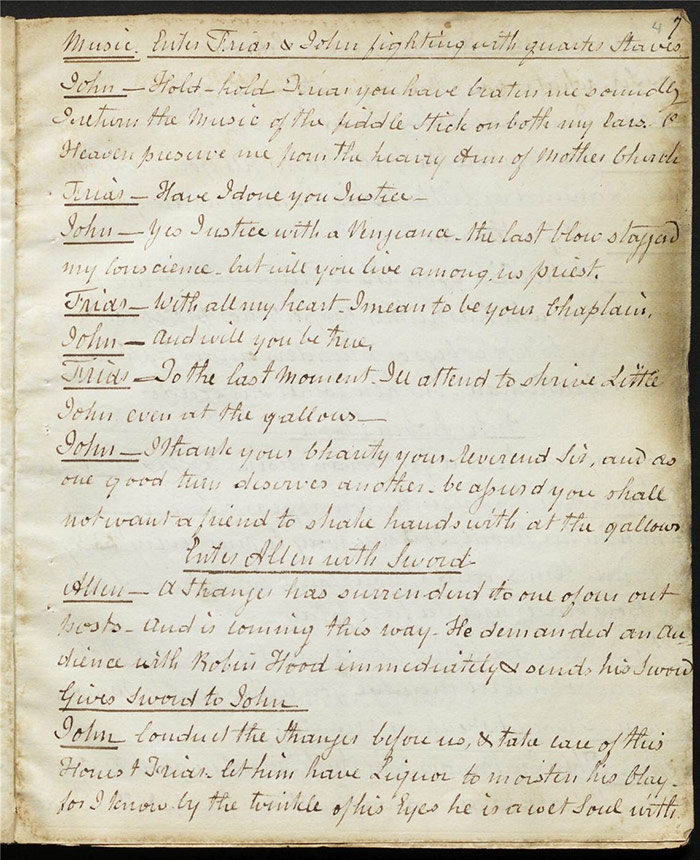 4 7
Music. Enter Friar & John fighting with quarter Staves
John — Hold - hold Friar you have beaten me soundly
I return the Music of the fiddle stick on both my Ears. &
Heaven preserve me from the heavy Arm of Mother Church
Friar — Have I done you Justice —
John — Yes Justice with a Vengeance - the last blow staggerd
my Conscience - but will you live among us priest.
Friar — With all my heart - I mean to be your Chaplain.
John — And will you be true.
Friar — To the last Moment - Ill attend to shrive Little
John even at the gallows —
John — I thank your Charity your Reverend Sir, and as
one good turn deserves another - be assurd you shall
not want a friend to shake hands with at the gallows
Enter Allen with Sword
Allen — A Stranger has surrenderd to one of our out
posts - And is coming this way - He demanded an Au
dience with Robin Hood immediately & sends his Sword
Gives Sword to John
John Conduct the Stranger before us, & take care of this
Honest Friar - let him have Liquor to moisten his Clay -
for I know by the twinkle of his Eyes he is a wet Soul with